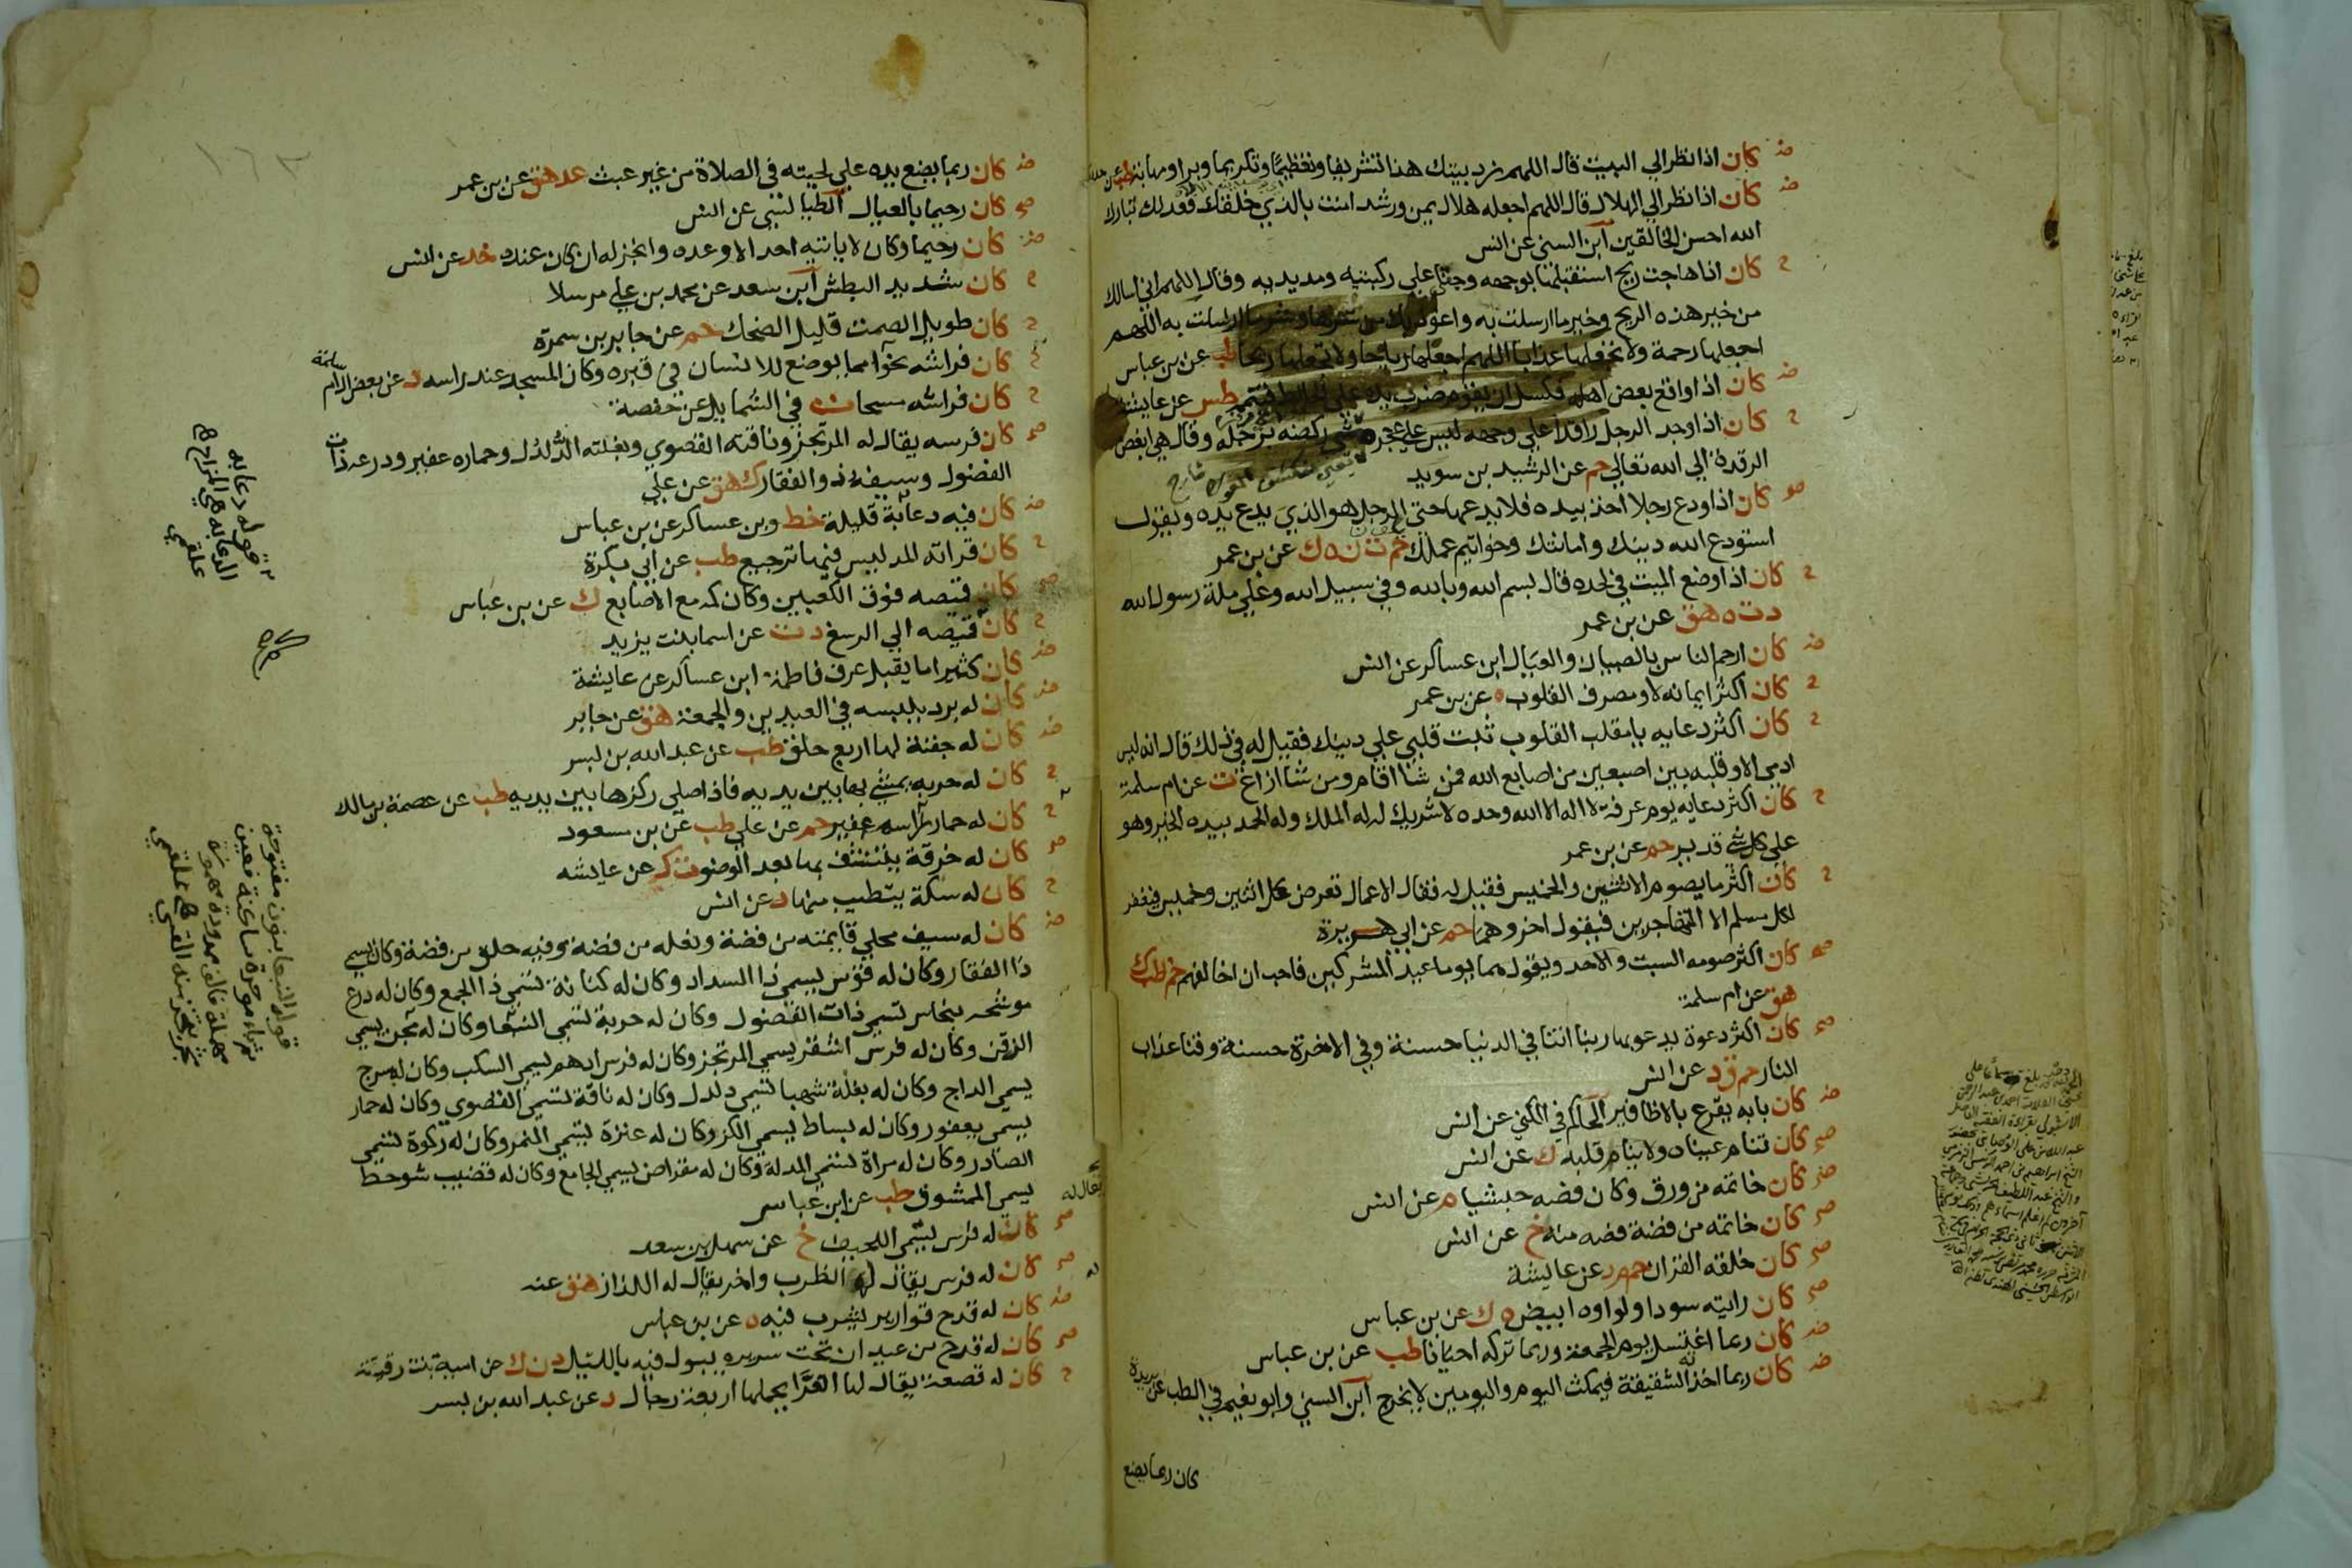 كان اذا نظر الي البيت قال اللهم زد بيتك هذا تشريفا وتعظيما وتكريما وبرا ومهابة طب عن
كان اذا نظر الي الهلال قال اللهم اجعله هلال يمن ورشد امنت بالذي خلقك فعدلك تبارك
الله احسن الخالقين ابن السني عن انس
كان اذا هاجت ريح استقبلها بوجهه وجثا علي ركبتيه ومد يديه وقال اللهم اني اسالك
من خير هذه الريح وخير ما ارسلت به واعوذ بك من شرها وشر ما ارسلت به اللهم
اجعلها رحمة ولا تجعلها عذابا اللهم اجعلها رياحا ولا تجعلها ريحا طب عن بن عباس
كان اذا واقع بعض اهله فكسل ان يقوم ضرب يده علي الحايط فتيمم طس عن عايشة
كان اذا وجد الرجل راقدا علي وجهه ليس علي عجزه شي ركضه برجله وقال هي ابغض
الرقدة الي الله تعالي حم عن الرشيد بن سويد
كان اذا ودع رجلا اخذ بيده فلا يدعها حتي الرجل هو الذي يدع يده ويقول
استودع الله دينك وامانتك وخواتيم عملك حم ت ن ه ك عن بن عمر
كان اذا وضع الميت في لحده قال بسم الله وبالله وفي سبيل الله وعلي ملة رسول الله
د ت ه هق عن بن عمر
كان ارحم الناس بالصبيان والعيال ابن عساكر عن انس
كان اكثر ايمانه لا ومصرف القلوب ه عن بن عمر
كان اكثر دعايه يا مقلب القلوب ثبت قلبي علي دينك فقيل له في ذلك قال انه ليس
ادمي الا وقلبه بين اصبعين من اصابع الله فمن شا اقام ومن شا ازاغ ت عن ام سلمة
كان اكثر دعايه يوم عرفة لا اله الا الله وحده لا شريك له له الملك وله الحمد بيده الخير وهو
علي كل شي قدير حم عن بن عمر
كان اكثر ما يصوم الاثنين والخميس فقيل له فقال الاعمال تعرض كل اثنين وخميس فيغفر
لكل مسلم الا المتهاجرين فيقول اخروهما حم عن ابي هريرة
كان اكثر صومه السبت والاحد ويقول هما يوما عيد المشركين فاحب ان اخالفهم حم طب ك
هق عن ام سلمة
كان اكثر دعوة يدعو بها ربنا اتنا في الدنيا حسنة وفي الاخرة حسنة وقنا عذاب
النار حم ق د عن انس
كان بابه يقرع بالاظافير الحاكم في الكني عن انس
كان تنام عيناه ولا ينام قلبه ك عن انس
كان خاتمه من ورق وكان فصه حبشيا م عن انس
كان خاتمه من فضة فصه منه خ عن انس
كان خلقه القران حم م د عن عايشة
كان رايته سودا ولواوه ابيض ه ك عن بن عباس
كان ربما اغتسل يوم الجمعة وربما تركه احيانا طب عن بن عباس
كان ربما اخذته الشقيقة فيمكث اليوم واليومين لا يخرج ابن السني وابو نعيم في الطب عن بريدة
كان ربما يضع
كان ربما يضع يده علي لحيته في الصلاة من غير عبث عد هق عن بن عمر
كان رحيما بالعيال الطيالسي عن انس
كان رحيما وكان لا ياتيه احد الا وعده وانجز له ان كان عنده خد عن انس
كان شديد البطش ابن سعد عن محمد بن علي مرسلا
كان طويل الصمت قليل الضحك حم عن جابر بن سمرة
كان فراشه نحوا مما يوضع للانسان في قبره وكان المسجد عند راسه د عن بعض ال ام سلمة
كان فراشه مسحا ت في الشمايل عن حفصة
كان فرسه يقال له المرتجز وناقته القصوي وبغلته الدلدل وحماره عفير ودرعه ذات
الفضول وسيفه ذو الفقار ك هق عن علي
كان فيه دعابة قليلة خط وبن عساكر عن بن عباس
كان قراته المد ليس فيها ترجيع طب عن ابي بكرة
كان قميصه فوق الكعبين وكان كمه مع الاصابع ك عن بن عباس
كان قميصه الي الرسغ د ت عن اسما بنت يزيد
كان كثيرا ما يقبل عرف فاطمة ابن عساكر عن عايشة
كان له برد يلبسه في العيدين والجمعة هق عن جابر
كان له جفنة لها اربع حلق طب عن عبد الله بن بسر
كان له حربه يمشي بها بين يديه فاذا صلي ركزها بين يديه طب عن عصمة بن مالك
كان له حمار اسمه عفير حم عن علي طب عن بن مسعود
كان له خرقة يتنشف بها بعد الوضو ت ك عن عايشه
كان له سكة يتطيب منها د عن انس
كان له سيف محلي قايمته من فضة ونعله من فضة وفيه حلق من فضة وكان يسمي
ذا الفقار وكان له قوس يسمي ذا السداد وكان له كنانة تسمي ذا الجمع وكان له درع
موشحه بنحاس تسمي ذات الفضول وكان له حربة تسمي النبعا وكان له مجن يسمي
الذقن وكان له فرس اشقر يسمي المرتجز وكان له فرس ادهم يسمي السكب وكان له سرج
يسمي الداج وكان له بغلة شهبا تسمي دلدل وكان له ناقة تسمي القصوي وكان له حمار
يسمي يعفور وكان له بساط يسمي الكز وكان له عنزة تسمي النمر وكان له ركوة تسمي
الصادر وكان له مراة تسمي المدلة وكان له مقراض يسمي الجامع وكان له قضيب شوحط
يسمي الممشوق طب عن ابن عباس
كان له فرس يسمي اللحيف خ عن سهل بن سعد
كان له فرس يقال له الظرب واخر يقال له اللزاز هق عنه
كان له قدح قوارير يشرب فيه ه عن بن عباس
كان له قدح من عيدان تحت سريره يبول فيه بالليل د ن ك عن اميمة بنت رقيقة
كان له قصعة يقال لها الغرا يحملها اربعة رجال د عن عبد الله بن بسر
قوله دعابه
الدعابه هي المزاح
علقمي
قوله النبعا بنون مفتوحة